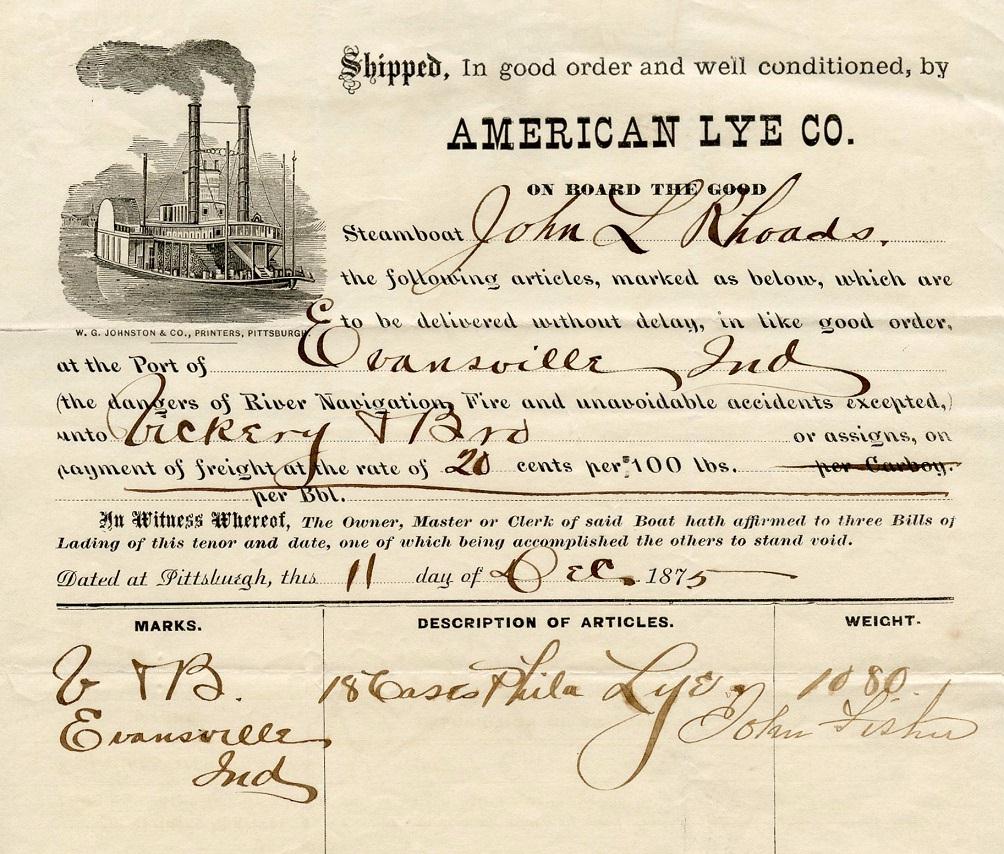 Shipped, In good order and well conditioned, by
AMERICAN LYE CO.
ON BOARD THE GOOD
Steamboat John L Rhoads.
the following articles, marked as below, which are
W. G. JOHNSTON & CO., PRINTERS, PITTSBURGH.
to be delivered without delay, in like good order,
at the Port of Evansville Ind
(the dangers of River Navigation, Fire and unavoidable accidents excepted,)
unto Vickery & Bro or assigns, on
payment of freight at the rate of 20 cents per 100 lbs. per Carboy.
per Bbl.
In Witness Whereof, The Owner, Master or Clerk of said Boat hath affirmed to three Bills of
Lading of this tenor and date, one of which being accomplished the others to stand void.
Dated at Pittsburgh, this 11 day of Dec. 1875
MARKS. DESCRIPTION OF ARTICLES. WEIGHT.
V & B. 18 Cases Phila Lye 1080.
Evansville John Fisher
Ind